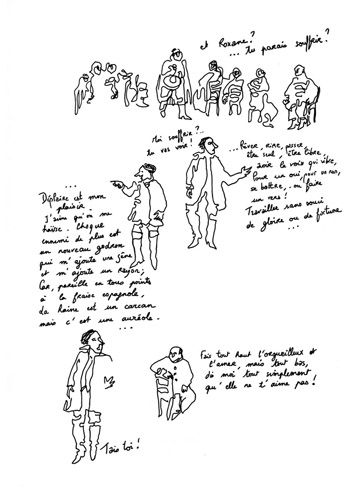 et Roxane?
... Tu parais souffrir?
Moi souffrir?...
Tu vas voir!
... Rêver, rire, passer,
être seul, être libre,
avoir la voix qui vibre,
Pour un oui, pour un non,
se battre, ou faire
un vers!
Travailler sans souci
de gloire ou de fortune
...
...
Déplaire est mon
plaisir
J'aime qu'on me
haïsse. Chaque
ennemi de plus est
un nouveau godron
qui m'ajoute une gêne
et m'ajoute un rayon;
Car, pareille en tous points
à la fraise espagnole,
La Haine est un carcan
mais c'est une auréole.
...
Fais tout haut l'orgueilleux et
l'amer, mais tout bas,
dis moi tout simplement
qu'elle ne t'aime pas!
Tais toi!